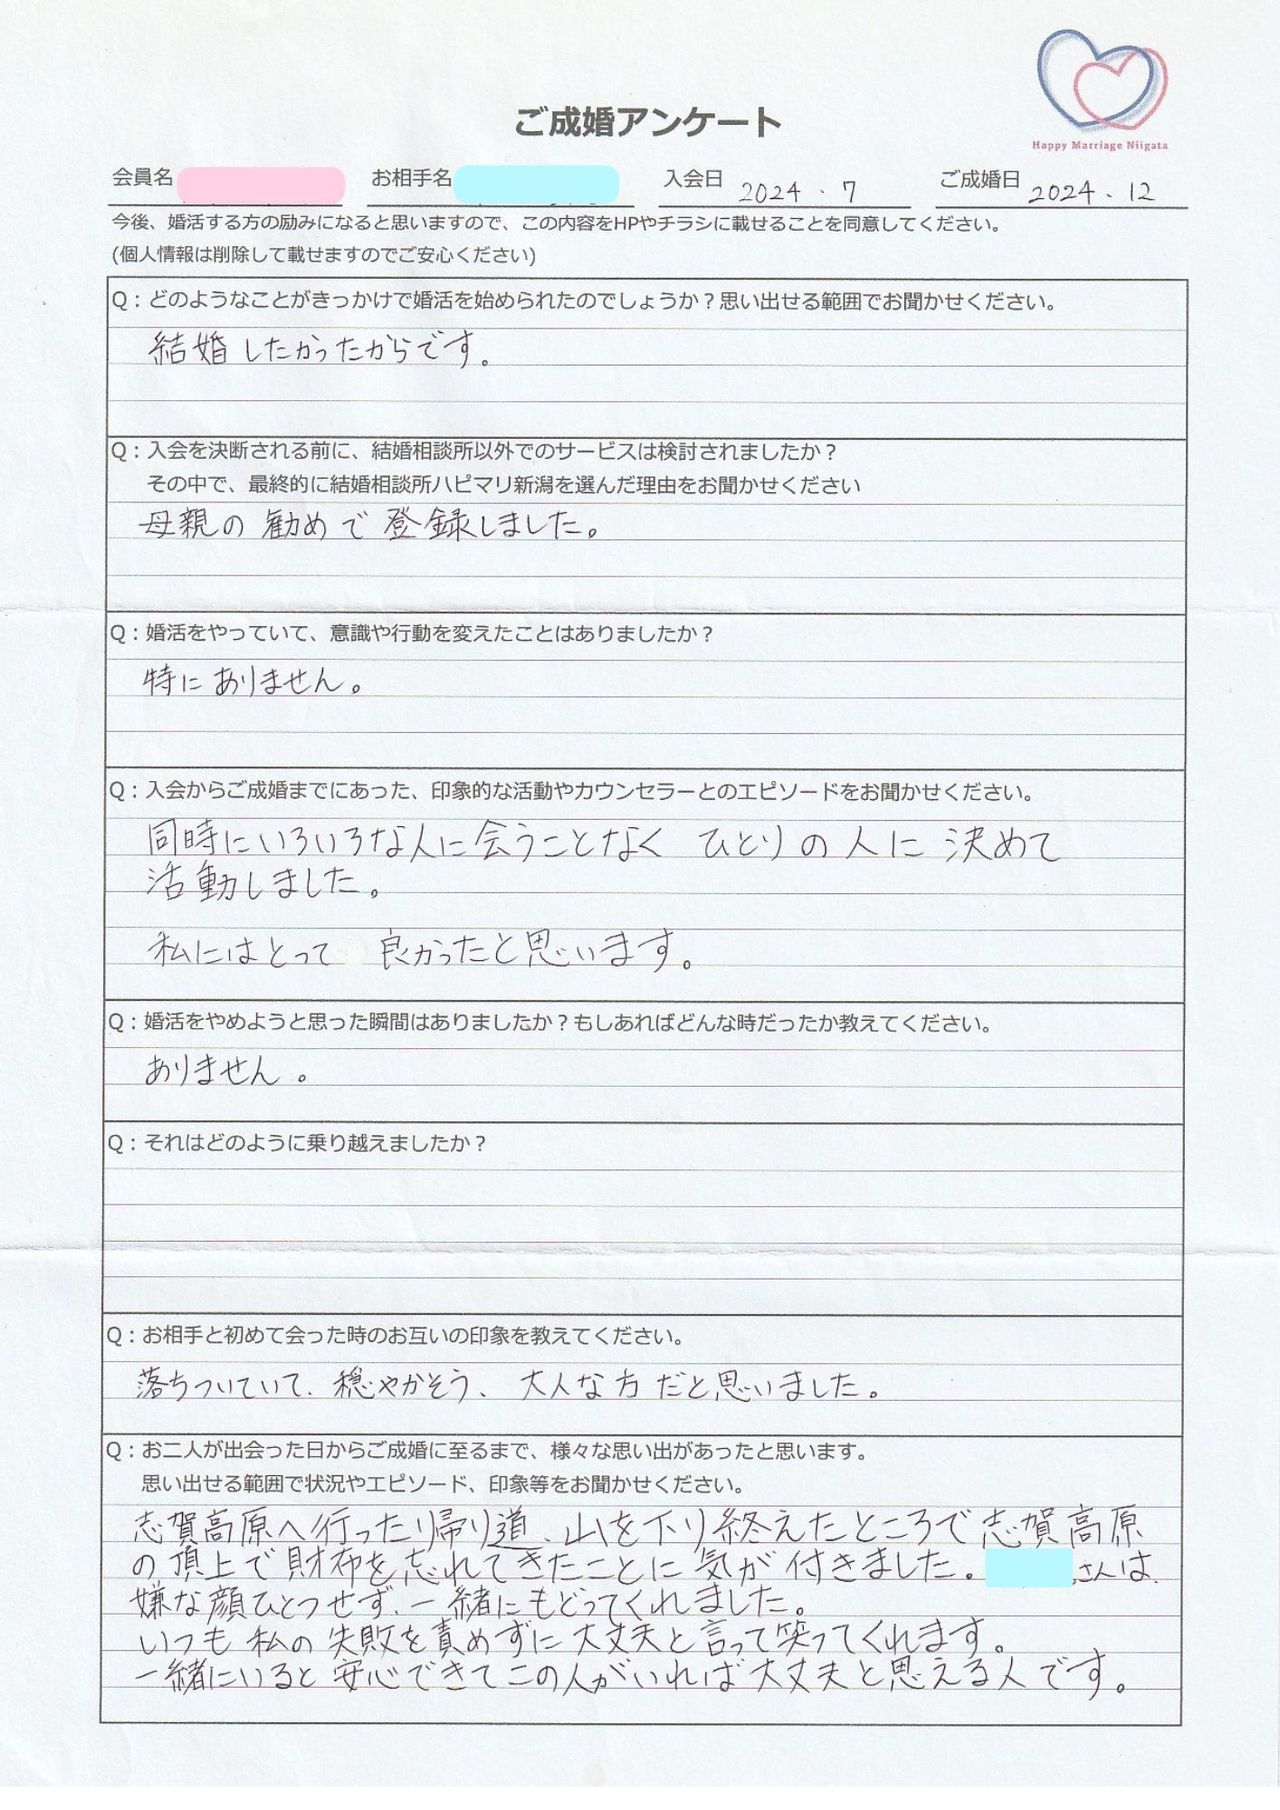 Happy Marriage Niigata
ご成婚アンケート
会員名 お相手名 入会日 2024.7 ご成婚日 2024.12
今後、婚活する方の励みになると思いますので、この内容をHPやチラシに載せることを同意してください。
(個人情報は削除して載せますのでご安心ください)
Q：どのようなことがきっかけで婚活を始められたのでしょうか？思い出せる範囲でお聞かせください。
結婚したかったからです。
Q：入会を決断される前に、結婚相談所以外でのサービスは検討されましたか？
その中で、最終的に結婚相談所ハピマリ新潟を選んだ理由をお聞かせください
母親の勧めで登録しました。
Q：婚活をやっていて、意識や行動を変えたことはありましたか？
特にありません。
Q：入会からご成婚までにあった、印象的な活動やカウンセラーとのエピソードをお聞かせください。
同時にいろいろな人に会うことなく ひとりの人に決めて
活動しました。
私にはとって 良かったと思います。
Q：婚活をやめようと思った瞬間はありましたか？もしあればどんな時だったか教えてください。
ありません。
Q：それはどのように乗り越えましたか？
Q：お相手と初めて会った時のお互いの印象を教えてください。
落ちついていて、穏やかそう、大人な方だと思いました。
Q：お二人が出会った日からご成婚に至るまで、様々な思い出があったと思います。
思い出せる範囲で状況やエピソード、印象等をお聞かせください。
志賀高原へ行ったり帰り道、山を下り終えたところで志賀高原
の頂上で財布を忘れてきたことに気が付きました。さんは、
嫌な顔ひとつせず、一緒にもどってくれました。
いつも私の失敗を責めずに大丈夫と言って笑ってくれます。
一緒にいると安心できてこの人がいれば大丈夫と思える人です。